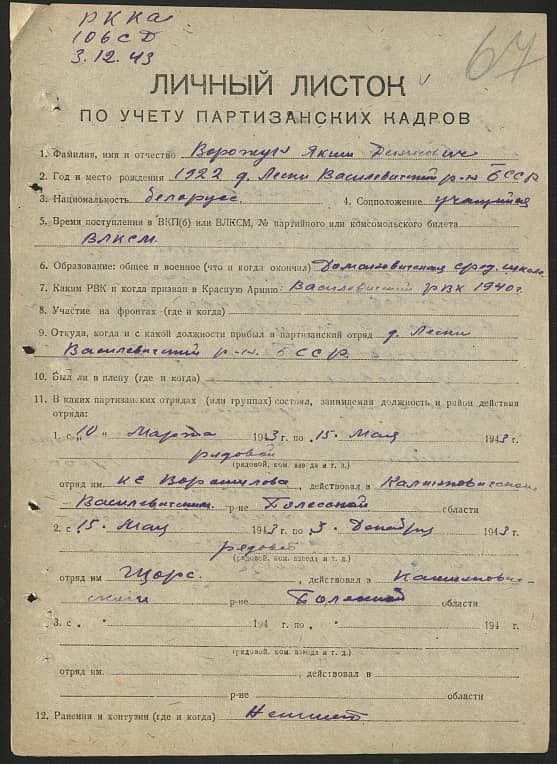 РККА
106 СД
3.12.43
67
ЛИЧНЫЙ ЛИСТОК
ПО УЧЕТУ ПАРТИЗАНСКИХ КАДРОВ
1. Фамилия, имя и отчество Ворожун Яким
2. Год и место рождения 1922 д. Лески Василевичский р-н БССР
3. Национальность белорус. 4. Соцположение учащийся
5. Время поступления в ВКП(б) или ВЛКСМ, № партийного или комсомольского билета
ВЛКСМ
6. Образование: общее и военное (что и когда окончил) Домановичская сред. школа
7. Каким РВК и когда призван в Красную Армию: Василевичский РВК 1940 г.
8. Участие на фронтах (где и когда)
9. Откуда, когда и с какой должности прибыл в партизанский отряд д. Лески
Василевичский р-н. БССР.
10. Был ли в плену (где и когда)
11. В каких партизанских отрядах (или группах) состоял, занимаемая должность и район действия
отряда:
1. с "10" Марта 1943 г. по 15. Мая 1943 г.
рядовой
(рядовой, ком. взвода и т. д.)
отряд им Ворошилова, действовал в Калинковичском
Василевичском р-не Полесской области
2. с 15. Мая 1943 г. по 3. Декабря 1943 г.
рядовой
(рядовой, ком. взвода и т. д.)
отряд им Щорс., действовал в Калинкович-
ском р-не Полесской области
3. с " 194 г. по " 194 г.
(рядовой, ком. взвода и т. д.)
отряд им. , действовал в
р-не области
12. Ранения и контузии (где и когда)